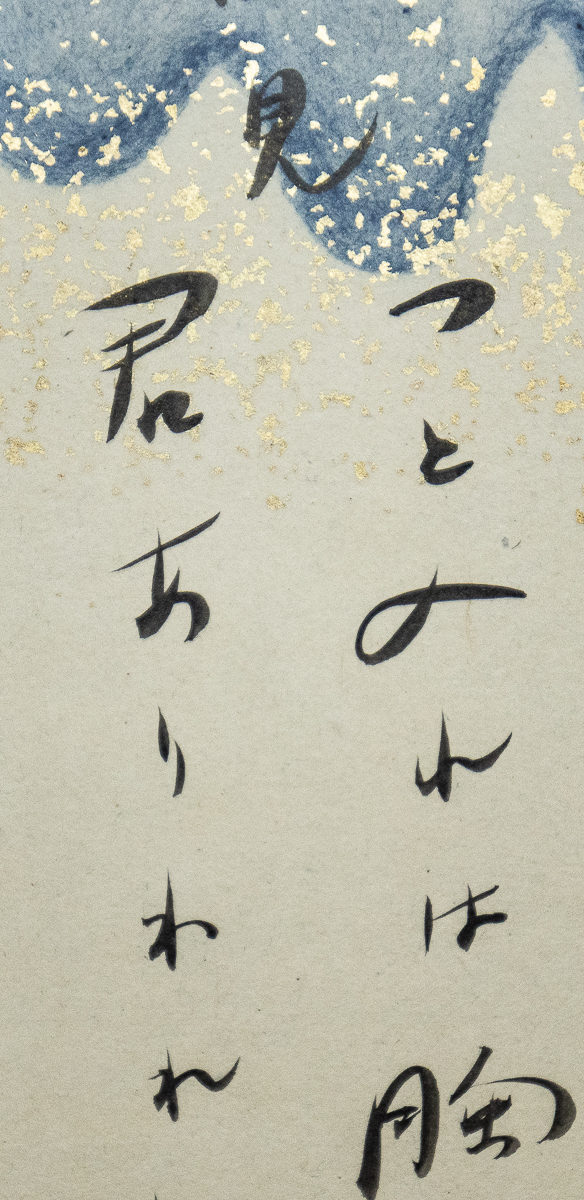 つとのれは胸
見
君ありわれ